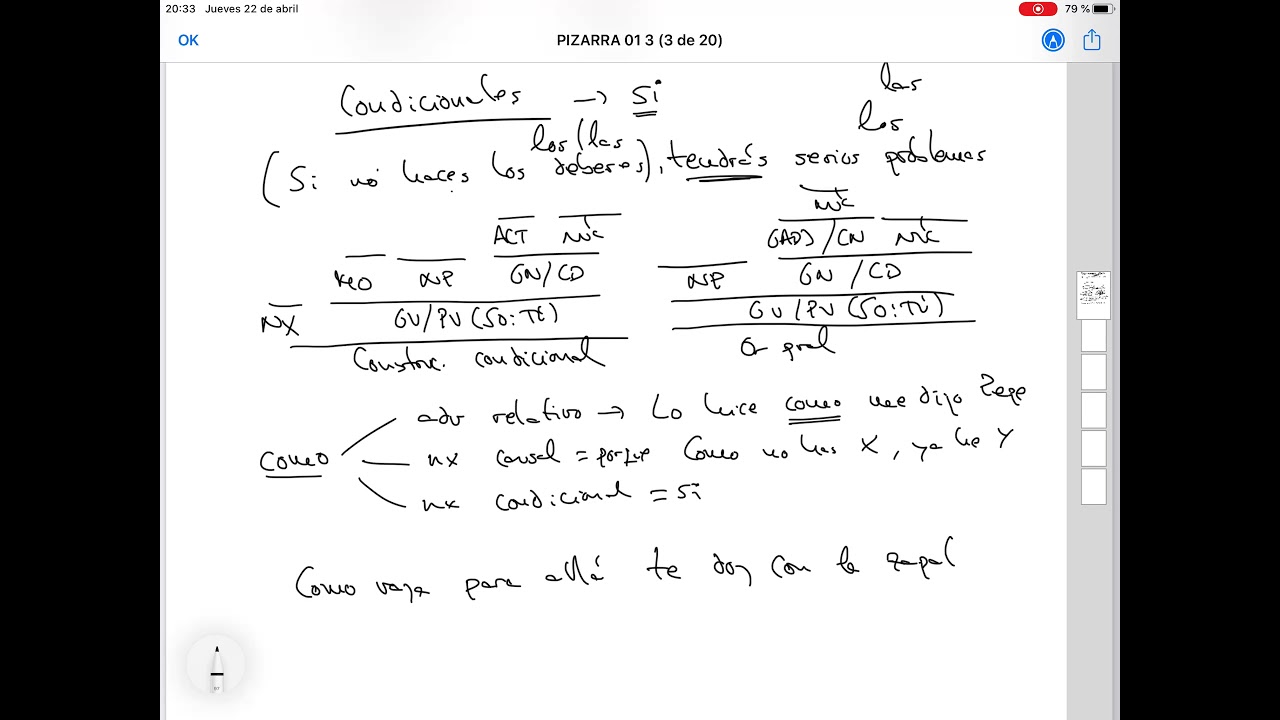 20:33 Jueves 22 de abril 79 %
OK PIZARRA 01 3 (3 de 20)
Condicionales → Si
las
los
los (las
(Si no haces los deberes), tendrás serios problemas
N/C
ACT N/C GADJ/CN N/C
NP GN/CD NP GN / CD
NX GV/PV (SO: Tú) GV/PV (SO: Tú)
Construc. condicional Or pral
adv relativo → Lo hice como me dijo Pepe
como nx causal = porque Como no has X, ya he Y
nx condicional = si
Como vaya para allá te doy con la zapat